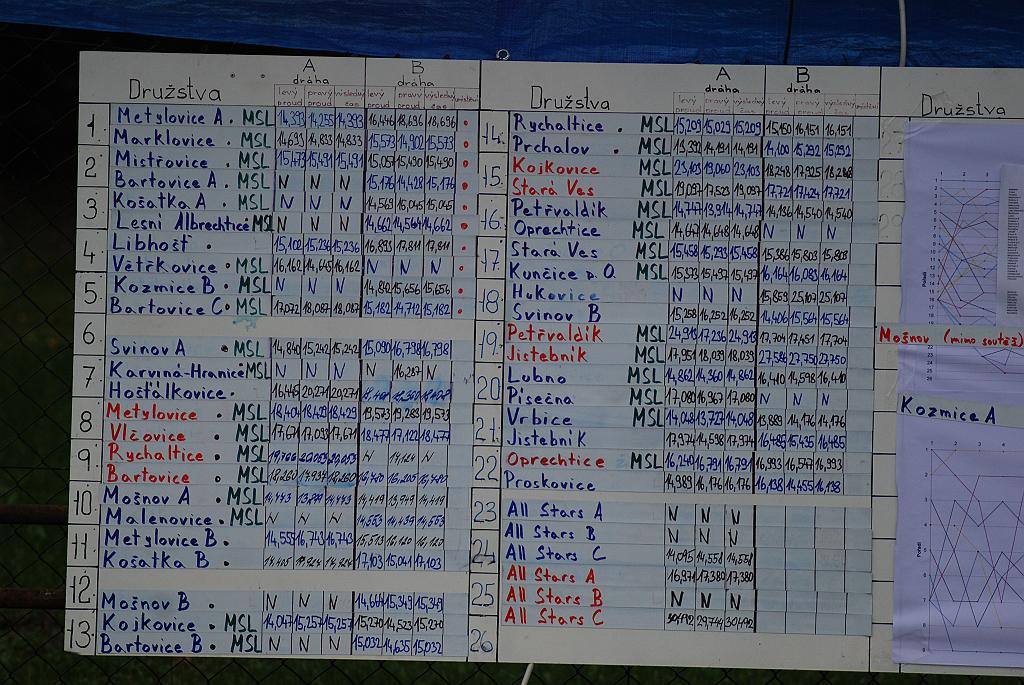 A B
dráha dráha
Družstva levý proud pravý proud výsledný čas levý proud pravý proud výsledný čas
1. Metylovice A. MSL 14,393 14,255 14,393 16,446 18,696 18,696
Marklovice. MSL 14,693 14,833 14,833 15,573 14,902 15,573
2 Mistřovice. MSL 15,473 15,491 15,491 15,057 15,490 15,490
Bartovice A. MSL N N N 15,176 14,428 15,176
3 Košatka A. MSL N N N 14,569 15,045 15,045
Lesní Albrechtice MSL N N N 14,662 14,564 14,662
4 Libhošť. 15,102 15,236 15,236 16,893 17,811 17,811
Větřkovice. MSL 16,162 14,645 16,162 N N N
5 Kozmice B. MSL N N N 14,842 15,656 15,656
Bartovice C. MSL 17,072 18,087 18,087 15,182 14,712 15,182
6
Svinov A. MSL 14,840 15,242 15,242 15,090 16,798 16,798
7 Karviná-Hranice MSL N N N N 16,287 N
Hošťálkovice. 16,465 20,271 20,271
8 Metylovice. MSL 18,404 18,429 18,429 19,573 19,283 19,573
Vlčovice. MSL 17,671 17,093 17,671 18,477 17,122 18,477
9 Rychaltice. MSL N 14,124 N
Bartovice. MSL 18,260 14,937 18,260
10 Mošnov A. MSL 14,443 14,443 14,419 13,979 14,419
Malenovice. MSL N N N 14,553 14,439 14,553
11 Metylovice B. 14,555 16,743 16,743 15,513 16,120 16,120
Košatka B. 17,103 15,041 17,103
12
Mošnov B. 14,664 15,349 15,349
13 Kojkovice. MSL 14,047 15,257 15,257 15,270 14,523 15,270
Bartovice B. MSL N N N 15,032 14,635 15,032
A B
dráha dráha
Družstva levý proud pravý proud výsledný čas levý proud pravý proud výsledný čas
14. Rychaltice. MSL 15,209 15,029 15,209 15,150 16,151 16,151
Prchalov. MSL 13,392 14,191 14,191 14,100 15,292 15,292
15. Kojkovice MSL 23,103 19,060 23,103 18,248 17,925 18,248
Stará Ves MSL 19,097 17,523 19,097 17,721 17,424 17,721
16. Petřvaldík MSL 14,747 13,914 14,747 14,136 14,540 14,540
Oprechtice MSL 14,647 14,648 14,648 N N N
17. Stará Ves MSL 15,458 15,293 15,458 15,386 15,803 15,803
Kunčice p.O. MSL 15,573 15,497 15,497 16,164 16,083 16,164
18 Hukovice N N N 15,859 25,107 25,107
Svinov B 15,258 16,252 16,252 14,406 15,564 15,564
19. Petřvaldík MSL 24,918 17,236 24,918 17,704 17,451 17,704
Jistebník MSL 17,951 18,039 18,039 27,584 27,750 27,750
20 Lubno MSL 14,862 14,360 14,862 16,410 14,598 16,410
Písečna MSL 17,080 16,967 17,080 N N N
21. Vrbice MSL 14,048 13,727 14,048 13,889 14,176 14,176
Jistebník 17,974 14,598 17,974 16,485 15,435 16,485
22 Oprechtice MSL 16,240 16,791 16,791 16,993 16,547 16,993
Proskovice 14,989 16,176 16,176 16,138 14,455 16,138
23 All Stars A N N N
All Stars B N N N
24 All Stars C 14,095 14,558 14,558
All Stars A 16,971 17,380 17,380
25 All Stars B N N N
All Stars C 30,492 29,744 30,492
26
Družstva
Mošnov (mimo soutěž)
Kozmice A